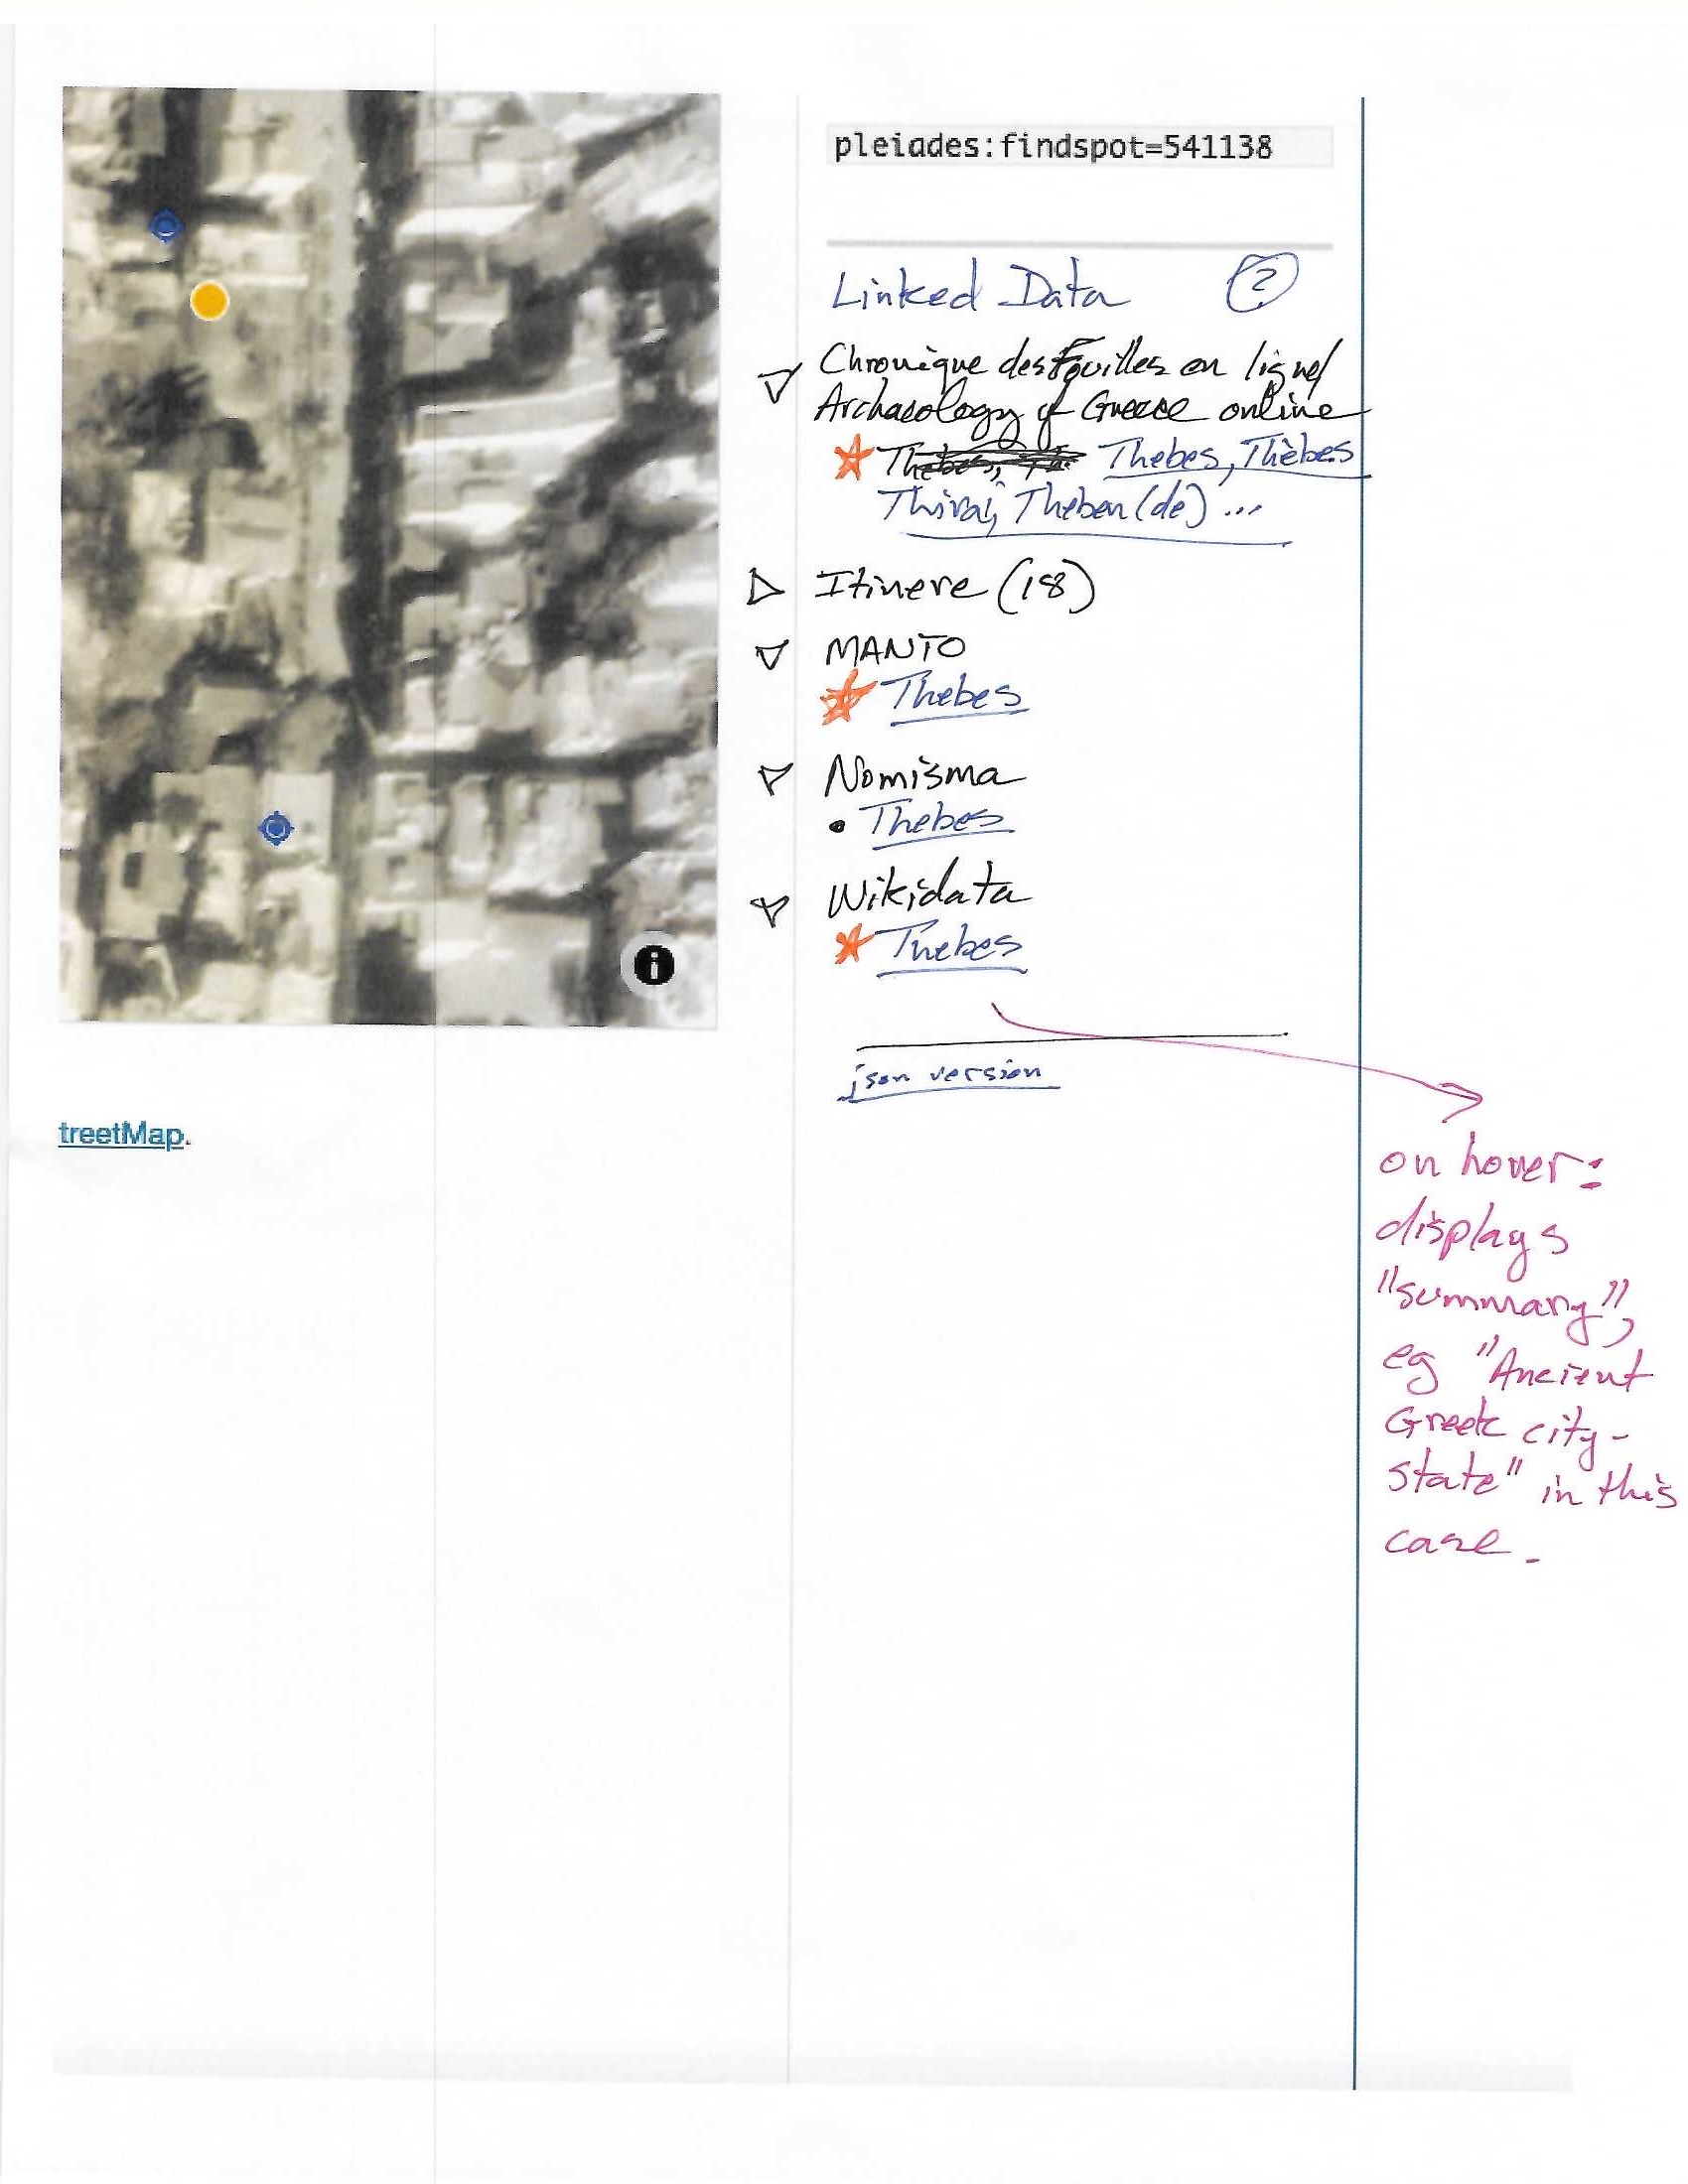 pleiades:findspot=541138
Linked Data ?
Chronique des Fouilles en ligne/
Archaeology of Greece online
Thebes, Thèbes
Thivai, Theben (de) ...
Itinere (18)
MANTO
Thebes
Nomisma
• Thebes
Wikidata
Thebes
json version
i
treetMap.
on hover:
displays
"summary",
eg "Ancient
Greek city-
state" in this
case.